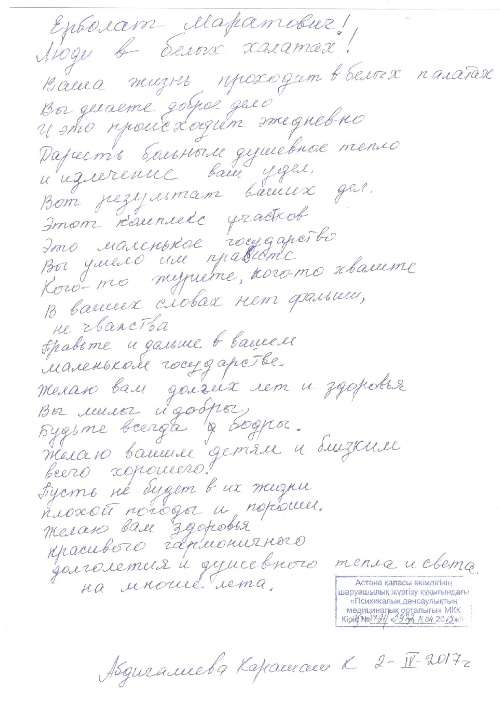 Ерболат Маратович!
Люди в белых халатах!
Ваша жизнь проходит в белых палатах
Вы делаете доброе дело
И это происходит ежедневно
Дарить больным душевное тепло
и излечение ваш удел.
Вот результат ваших дел.
Этот комплекс участков
Это маленькое государство
Вы умело им правите
Кого-то журите, кого-то хвалите
В ваших словах нет фальши,
не чванства
Правьте и дальше в вашем
маленьком государстве.
Желаю вам долгих лет и здоровья
Вы милы и добры,
Будьте всегда бодры.
Желаю вашим детям и близким
всего хорошего!
Пусть не будет в их жизни
плохой погоды и пороши.
Желаю вам здоровья
красивого гармоничного
долголетия и душевного тепла и света
на многие лета.
Астана қаласы әкімдігінің
шаруашылық жүргізу құқығындағы
«Психикалық денсаулықтың
медициналық орталығы» МКК
Кіріс №
Абдигалиева Карашаш К 2-IV-2017г